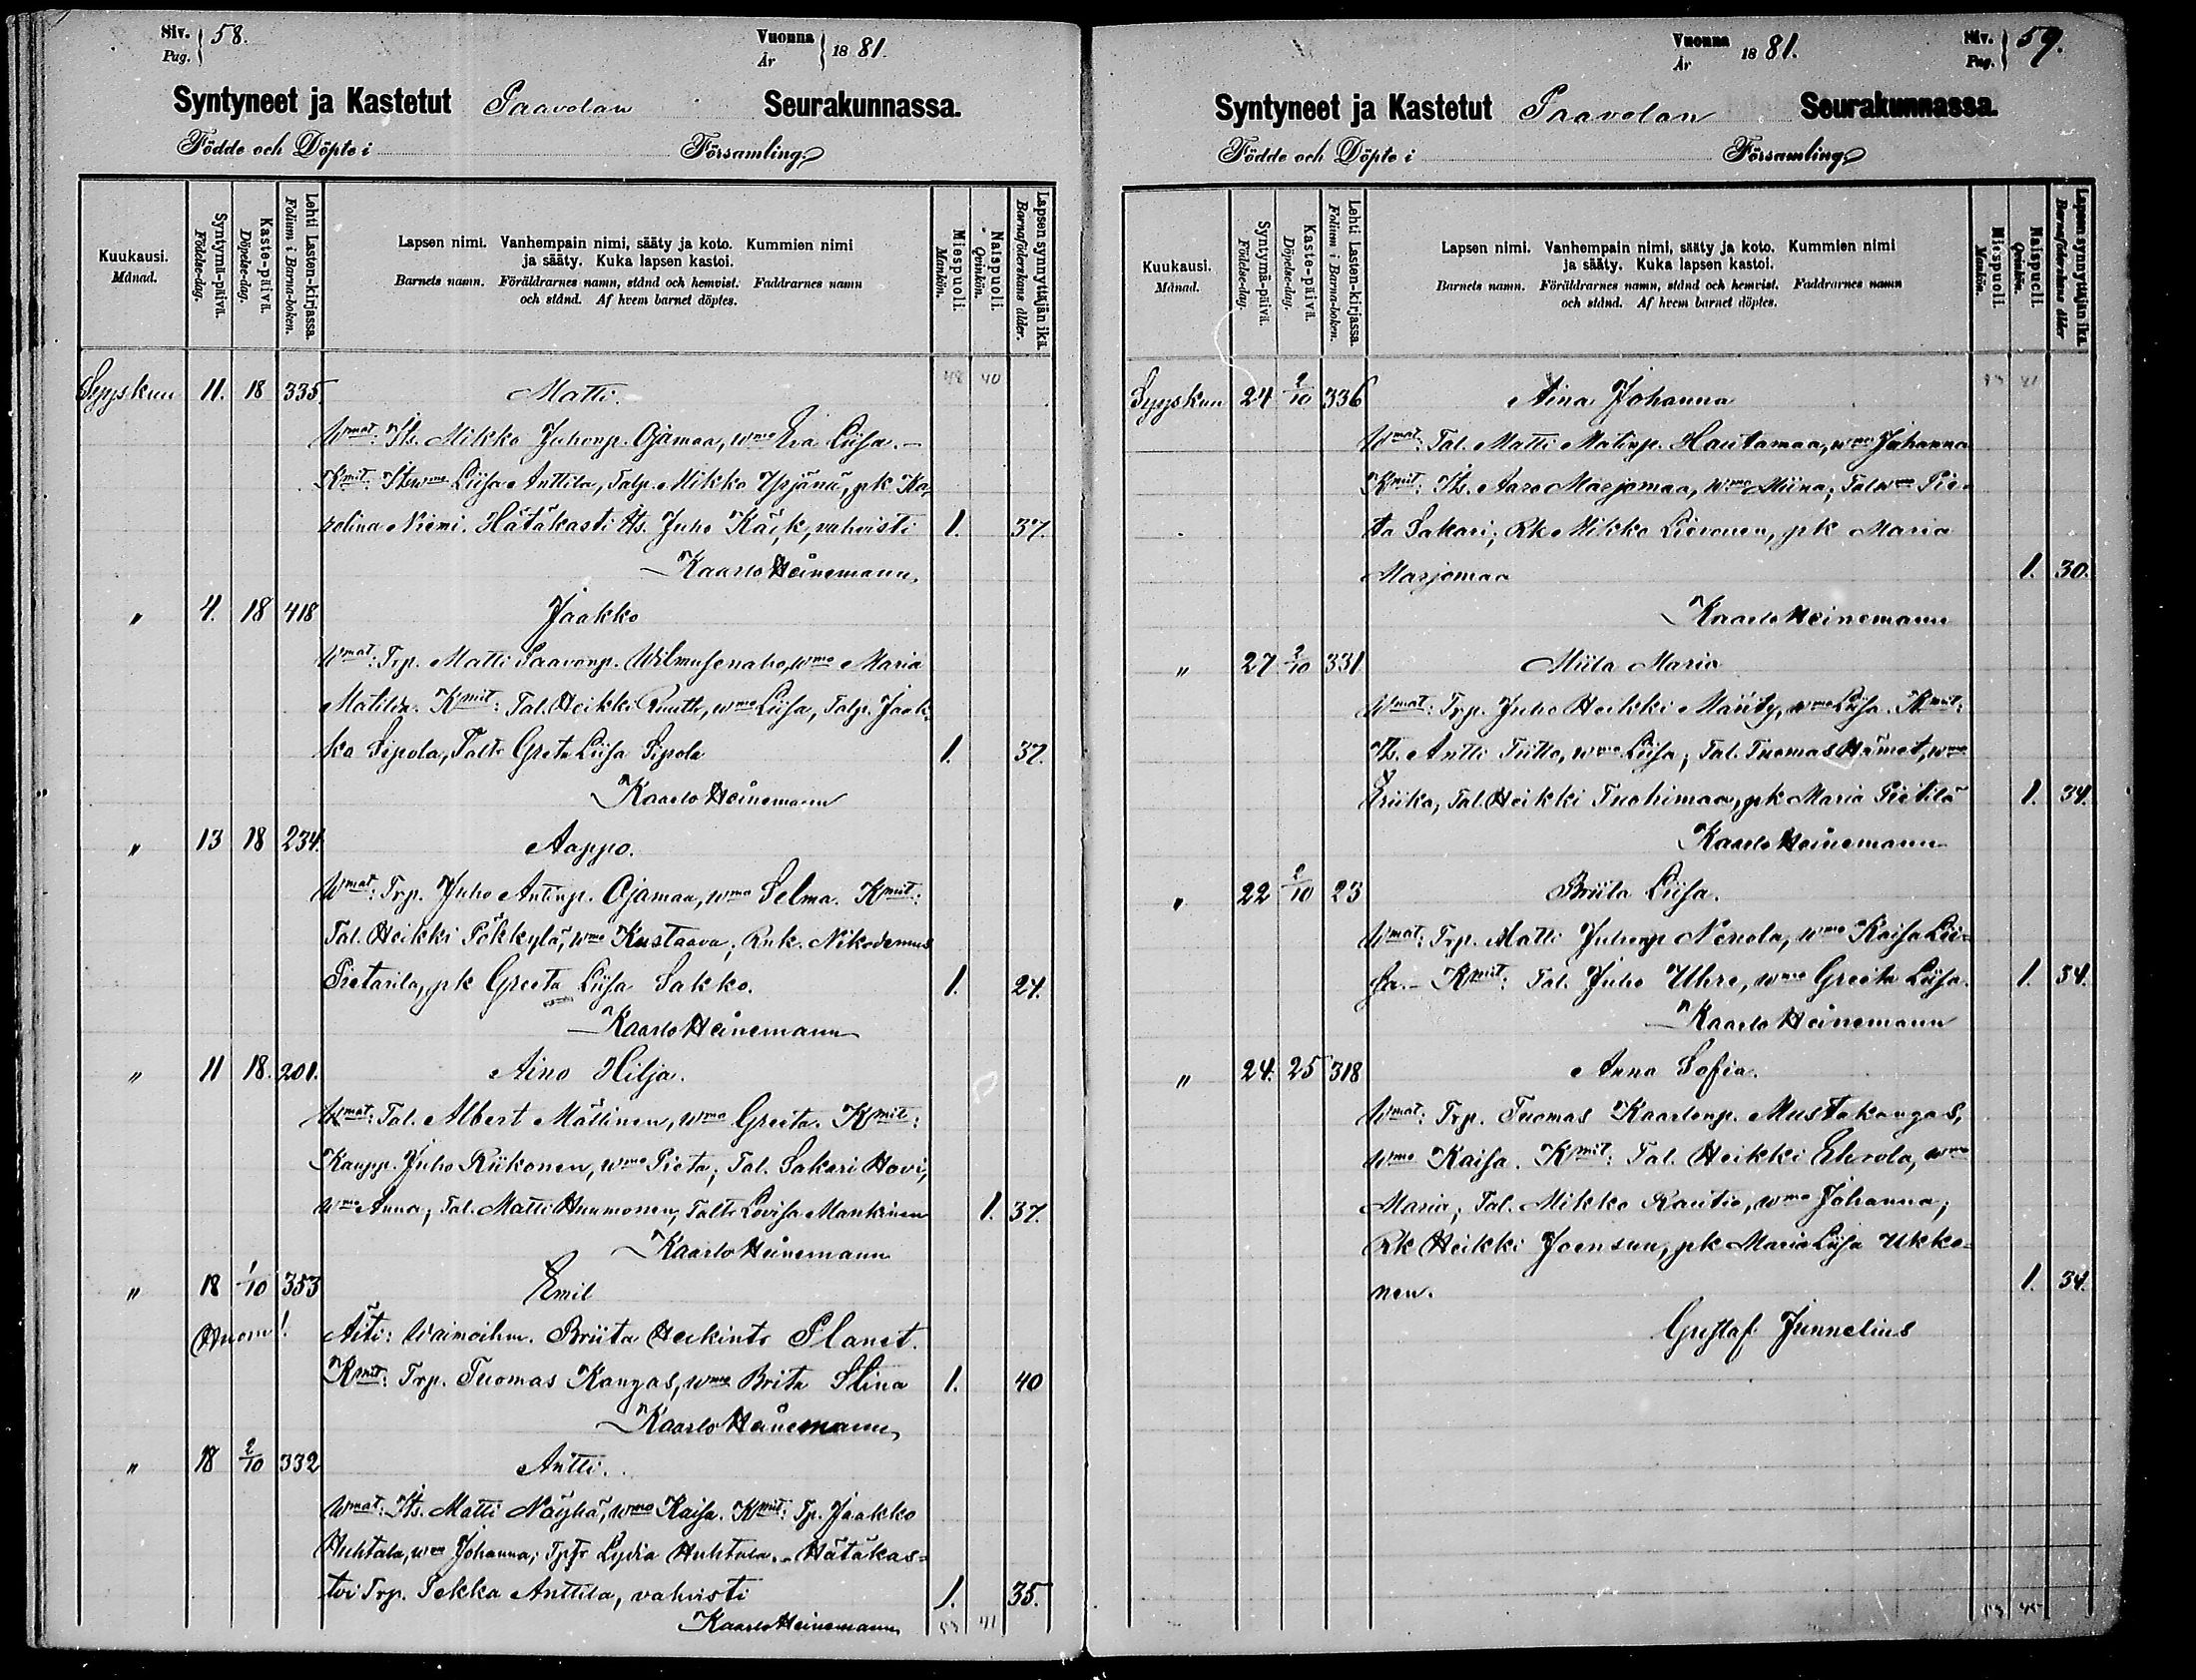 Siv. 58.
Pag.
Vuonna 1881.
År
Syntyneet ja Kastetut Paavolan Seurakunnassa.
Födde och Döpte i Församling
Kuukausi. Månad.
Syntymä-päivä. Födelse-dag.
Kaste-päivä. Döpelse-dag.
Lehti Lasten-kirjassa. Folium i Barna-boken.
Lapsen nimi. Vanhempain nimi, sääty ja koto. Kummien nimi
ja sääty. Kuka lapsen kastoi.
Barnets namn. Föräldrarnes namn, stånd och hemvist. Faddrarnes namn
och stånd. Af hvem barnet döptes.
Miespuoli. Mankön.
Naispuoli. Qvinkön.
Lapsen synnyttäjän ikä. Barnaföderskans ålder.
48 40
Syyskuu 11. 18 335. Matti.
Wmat: Its. Mikko Juhonp. Ojamaa, wmo Eva Liisa.-
Kmit: Itswmo Liisa Anttila, Talp. Mikko Ypjänä, pk Ka-
rolina Niemi. Hätäkasti Its. Juho Käck, vahvisti 1. 37.
Kaarlo Heinemann,
" 4. 18 418 Jaakko
Wmat: Trp. Matti Paavonp. Wilmusenaho, wmo Maria
Matilda. Kmit: Tal. Heikki Ruutti, wmo Liisa, Talp. Jaak-
ko Sipola, Taltr Greta Liisa Sipola 1. 37.
Kaarlo Heinemann
" 13 18 234. Aappo.
Wmat: Trp. Juho Antinp. Ojamaa, wmo Selma. Kmit:
Tal. Heikki Pökkylä, wmo Kustaava; Rnk. Nikodemus
Pietarila, pk Greeta Liisa Sakko. 1. 24.
Kaarlo Heinemann
" 11 18. 201. Aino Hilja.
Wmat: Tal. Albert Mällinen, wmo Greeta. Kmit:
Kaupp. Juho Riikonen, wmo Pieta; Tal. Sakari Hovi,
wmo Anna; Tal. Matti Hummonen, Taltr Lovisa Mankinen 1. 37.
Kaarlo Heinemann
" 18 1/10 353 Emil
Huom! Äiti: Waimoihm. Briita Heikintr Planet.
Kmit: Trp. Tuomas Kangas, wmo Brita Stina 1. 40
Kaarlo Heinemann,
" 18 2/10 332 Antti.
Wmat: Its. Matti Näyhä, wmo Kaisa. Kmit: Tp. Jaakko
Huhtala, wmo Johanna; Tptr Lydia Huhtala. - Hätäkas-
toi Trp. Pekka Anttila, vahvisti 1. 35.
Kaarlo Heinemann
53 41
Vuonna 1881.
År
Siv. 59.
Pag.
Syntyneet ja Kastetut Paavolan Seurakunnassa.
Födde och Döpte i Församling
Kuukausi. Månad.
Syntymä-päivä. Födelse-dag.
Kaste-päivä. Döpelse-dag.
Lehti Lasten-kirjassa. Folium i Barna-boken.
Lapsen nimi. Vanhempain nimi, sääty ja koto. Kummien nimi
ja sääty. Kuka lapsen kastoi.
Barnets namn. Föräldrarnes namn, stånd och hemvist. Faddrarnes namn
och stånd. Af hvem barnet döptes.
Miespuoli. Mankön.
Naispuoli. Qvinkön.
Lapsen synnyttäjän ikä. Barnaföderskans ålder
53 41
Syyskuu 24 2/10 336 Aina Johanna
Wmat: Tal. Matti Matinp. Hautamaa, wmo Johanna
Kmit: Its. Aaro Marjomaa, wmo Miina; Talwmo Pie-
ta Sakari; Rk Mikko Lievonen, pk Maria
Marjomaa 1. 30.
Kaarlo Heinemann
" 27 2/10 331 Miila Maria
Wmat: Trp. Juho Heikki Mänty, wmo Liisa. Kmit:
Its. Antti Tiitto, wmo Liisa; Tal. Tuomas Hämet, wmo
Eriika, Tal. Heikki Tuohimaa, pk Maria Pietilä 1. 34.
Kaarlo Heinemann
" 22 2/10 23 Briita Liisa.
Wmat: Trp. Matti Juhonp Nevola, wmo Kaisa Lii-
sa. - Kmit: Tal. Juho Uhre, wmo Greeta Liisa. 1. 34.
Kaarlo Heinemann
" 24. 25 318 Anna Sofia.
Wmat: Trp. Tuomas Kaarlonp. Mustakangas,
wmo Kaisa. Kmit: Tal. Heikki Ehrola, wmo
Maria; Tal. Mikko Rautio, wmo Johanna;
Rk Heikki Joensuu, pk Maria Liisa Ukko-
nen. 1. 34.
Gustaf Junnelius
53 45